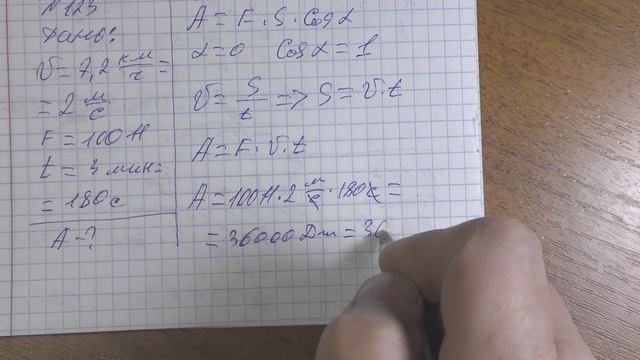 № 123
Дано:
V = 7,2 км/ч =
= 2 м/с
F = 100 Н
t = 3 мин =
= 180 с
A - ?
A = F · S · Cos α
α = 0 Cos α = 1
V = S/t => S = V · t
A = F · V · t
A = 100 Н · 2 м/с · 180 с =
= 36000 Дж = 36